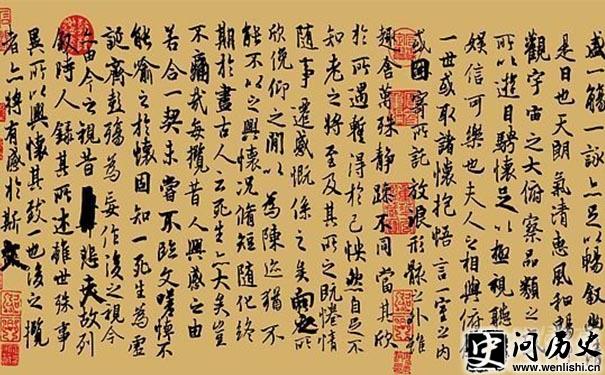 盛一觴一詠亦足以暢敘幽
是日也天朗氣清惠風和暢
觀宇宙之大俯察品類之
所以遊目騁懷足以極視聽
娛信可樂也夫人之相與俯
一世或取諸懷抱悟言一室之內
或因寄所託放浪形骸之外雖
趣舍萬殊靜躁不同當其欣
於所遇暫得於己怏然自足不
知老之將至及其所之既惓情
隨事遷感慨係之矣向之所
欣俛仰之閒以為陳迹猶不
能不以之興懷況脩短隨化終
期於盡古人云死生亦大矣豈
不痛哉每攬昔人興感之由
若合一契未嘗不臨文嗟悼不
能喻之於懷固知一死生為虛
誕齊彭殤為妄作後之視今
亦由今之視昔悲夫故列
敘時人錄其所述雖世殊事
異所以興懷其致一也後之攬
者亦將有感於斯文
史问历史
www.wenlishi.cn